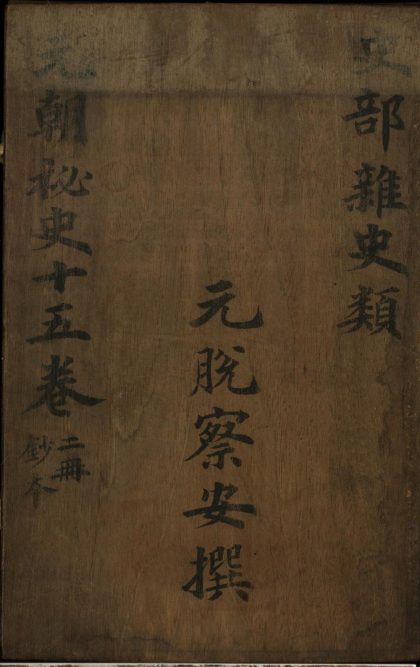 史部雜史類
元脫察安撰
元朝秘史十五卷
二冊
鈔本